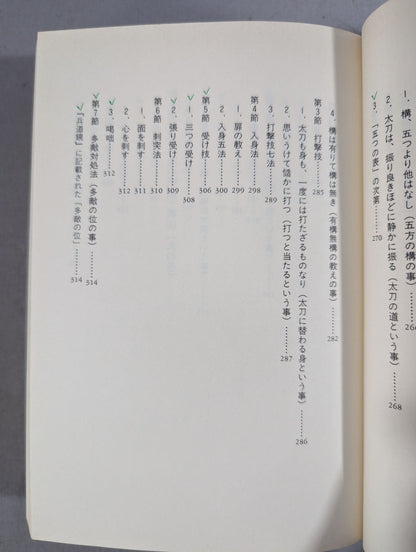 1、構、五つより他はなし(五方の構の事)
2、太刀は、振り良きほどに静かに振る(太刀の道という事)………268
✓3、「五つの表」の次第………270
4、構は有りて構は無き(有構無構の教えの事)………282
第3節 打撃技………285
1、太刀も身も、一度には打たざるものなり(太刀に替わる身という事)………286
2、思いうけて慥かに打つ(打つと当たるという事)………287
3、打撃技七法………289
第4節 入身法………298
1、扉の教え………299
2、入身五法………300
✓第5節 受け技………306
✓1、三つの受け………308
✓2、張り受け………309
第6節 刺突法………310
1、面を刺す………311
2、心を刺す………312
✓3、喝咄………312
✓第7節 多敵対処法(多敵の位の事)………314
✓『兵道鏡』に記載された「多敵の位」………314